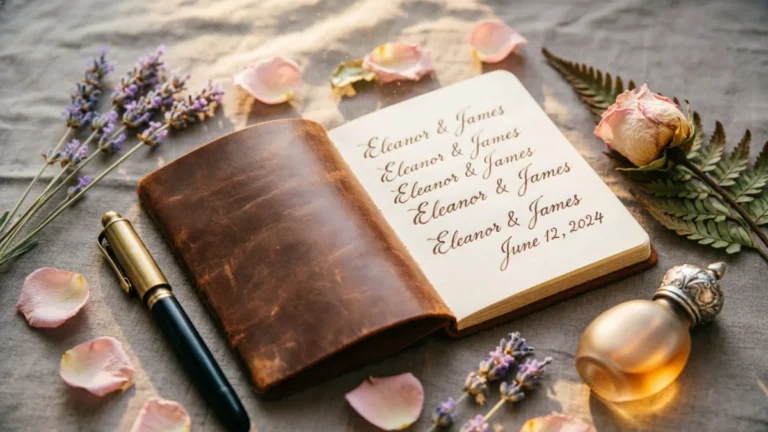 Eleanor & James
Eleanor & James
Eleanor & James
Eleanor & James
Eleanor & James
June 12, 2024